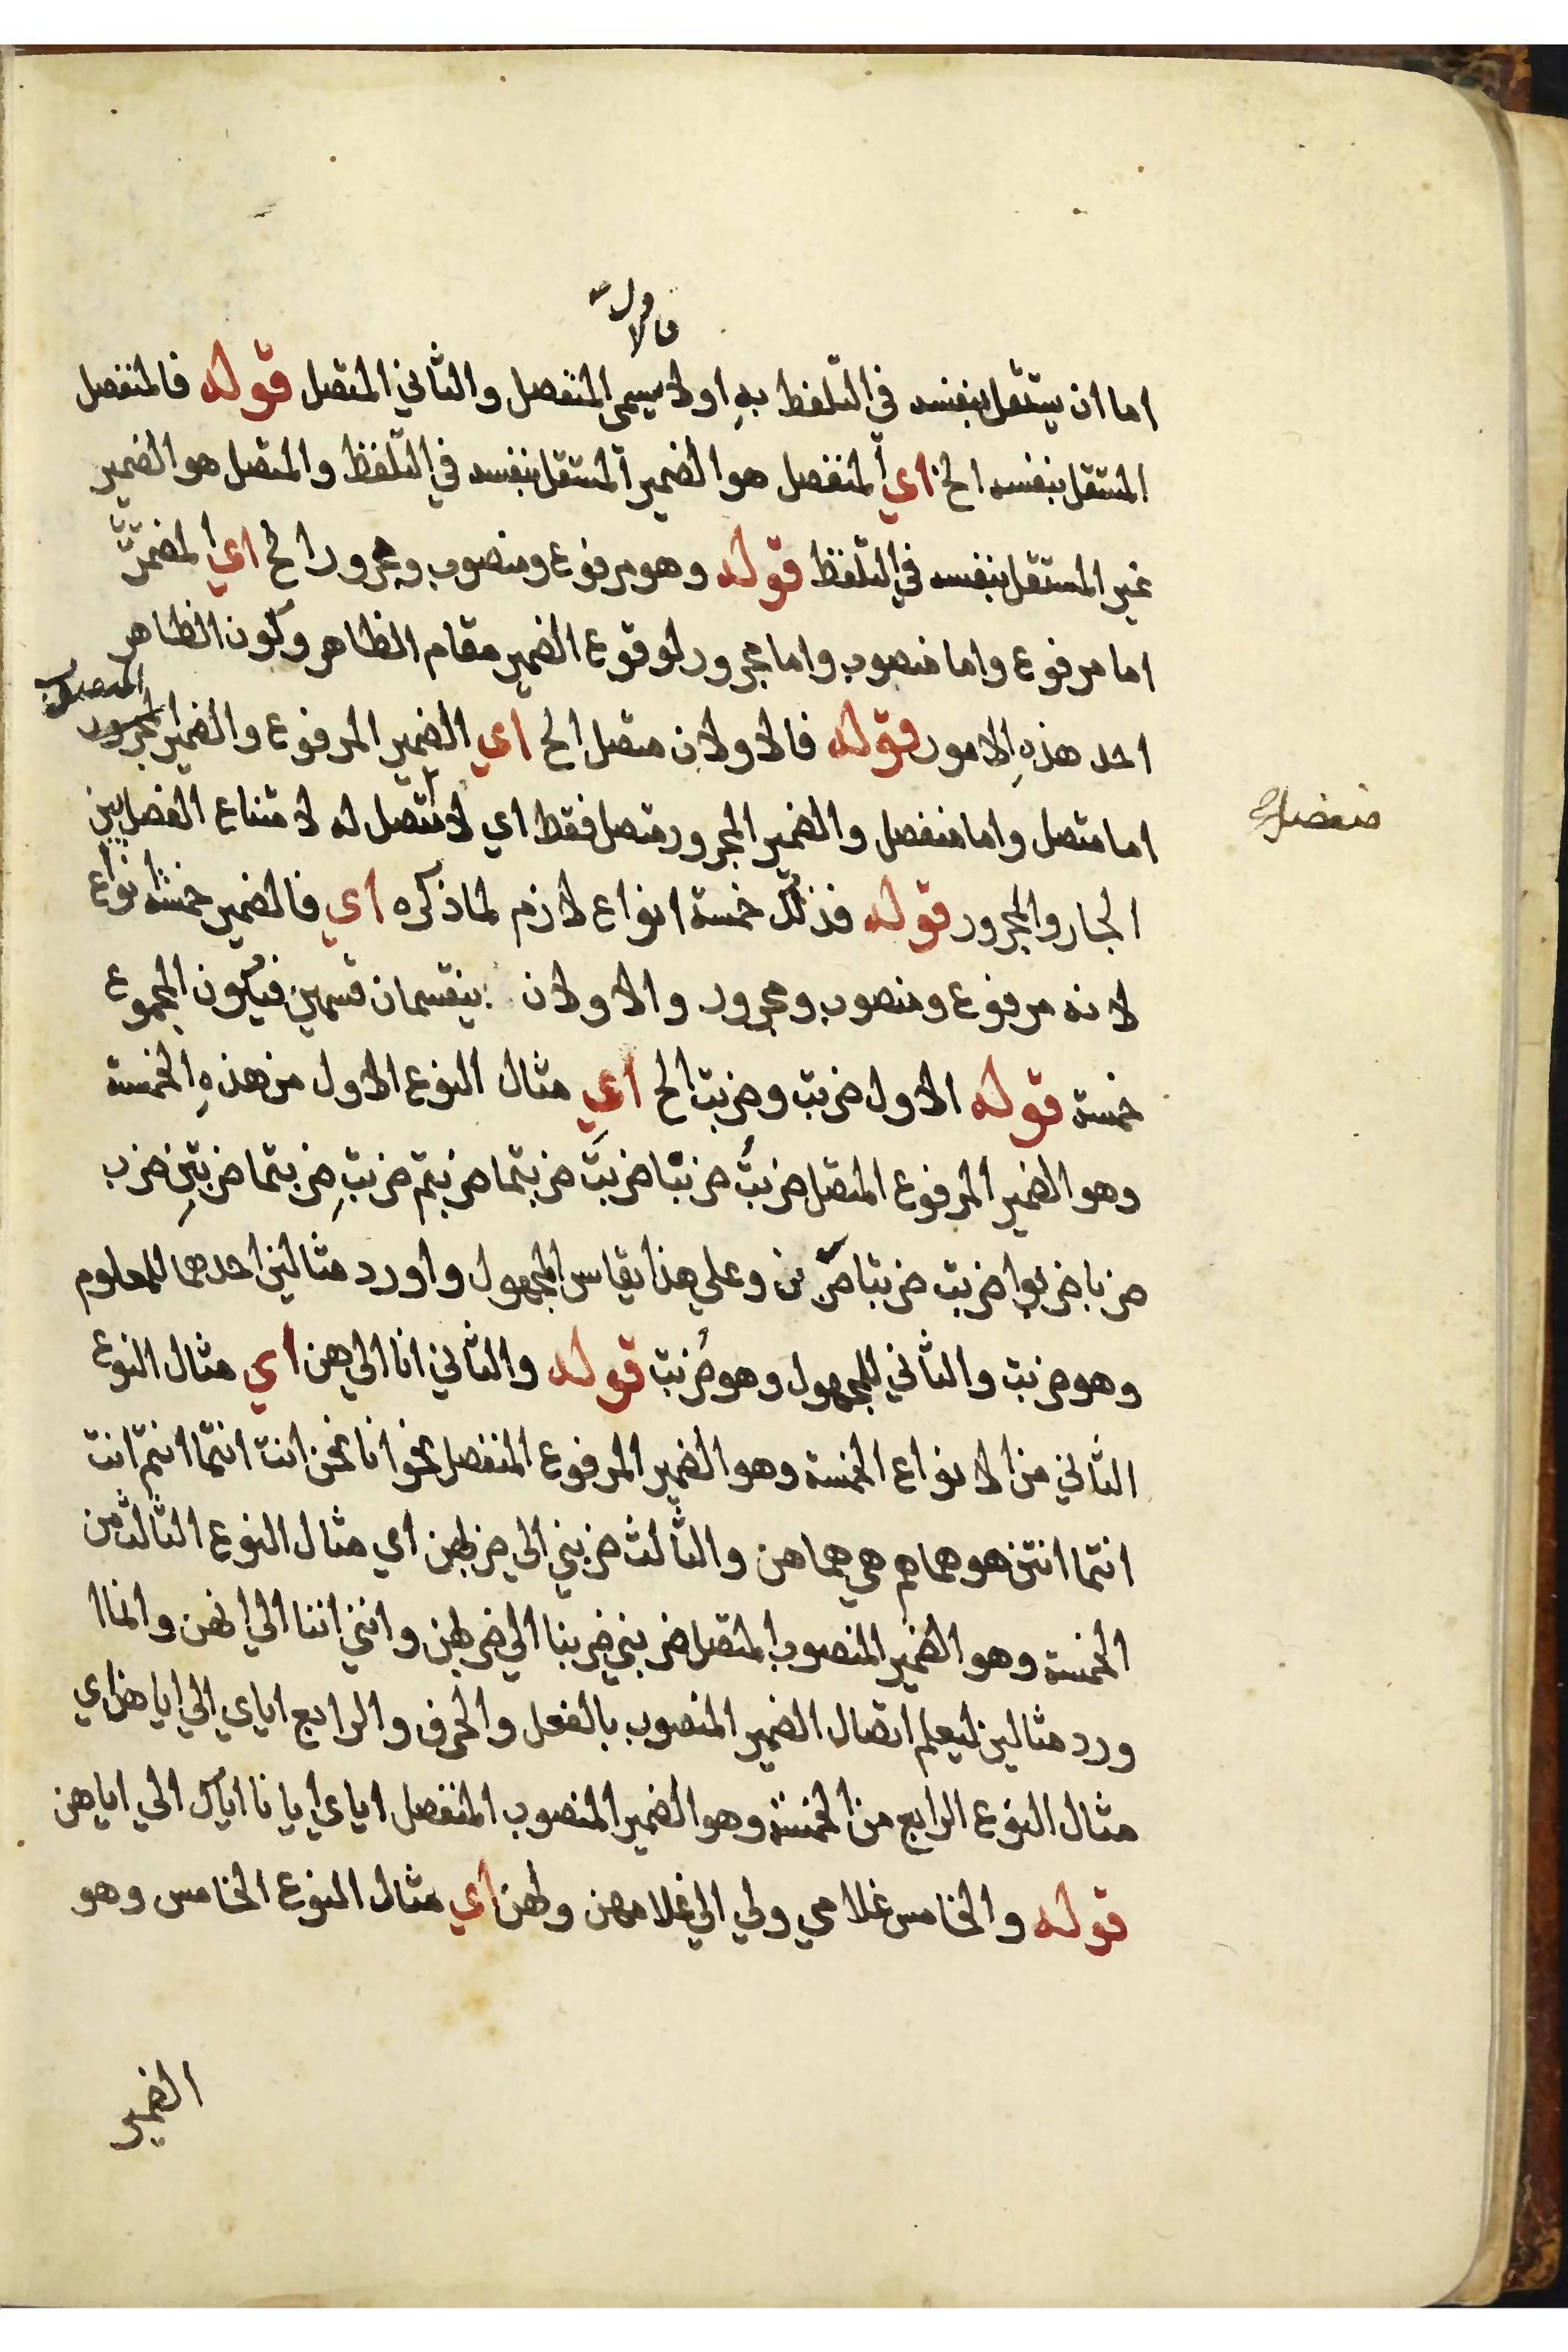 فالاول
اما ان يستقل بنفسه في التلفظ بهِ اولا يسمى المنفصل والثاني المتصل قوله فالمنفصل
المستقل بنفسه الخ اي المنفصل هو الضمير المستقل بنفسه في التلفظ والمتصل هو الضمير
غير المستقل بنفسه في التلفظ قوله وهو مرفوع ومنصوب ومجرور الخ اي المضمر
اما مرفوع واما منصوب واما مجرور لوقوع الضمير مقام الظاهر وكون الظاهر
المنصوب
احد هذهِ الامور قوله فالاولان متصل الخ اي الضمير المرفوع والضمير المجرور
اما متصل واما منفصل والضمير المجرور متصل فقط اي لا منفصل له لامتناع الفصل بين
منفصل
الجار والمجرور قوله فذلك خمسة انواع لازم لما ذكره اي فالضمير خمسة انواع
لانه مرفوع ومنصوب ومجرور والاولان ينقسمان قسمين فيكون المجموع
خمسة قوله الاول ضربت وضربت الخ اي مثال النوع الاول من هذهِ الخمسة
وهو الضمير المرفوع المتصل ضربتُ ضربنا ضربتَ ضربتما ضربتم ضربتِ ضربتما ضربتن ضرب
ضربا ضربوا ضربت ضربتا ضربن وعلي هذا يقاس المجهول واورد مثالين احدهما للمعلوم
وهو ضربت والثاني للمجهول وهو ضُربت قوله والثاني انا الي هن اي مثال النوع
الثاني من الانواع الخمسة وهو الضمير المرفوع المنفصل نحو انا نحن انت انتما انتم انت
انتما انتن هو هما هم هي هما هن والثالث ضربني الي ضربهن اي مثال النوع الثالث من
الخمسة وهو الضمير المنصوب المتصل ضربني ضربنا الي ضربهن وانني اننا الي انهن وانما ا
ورد مثالين ليعلم اتصال الضمير المنصوب بالفعل والحرف والرابع اياي الي اياهن اي
مثال النوع الرابع من الخمسة وهو الضمير المنصوب المنفصل اياي ايانا اياك الي اياهن
قوله والخامس غلامي ولي الي غلامهن ولهن اي مثال النوع الخامس وهو
الضمير